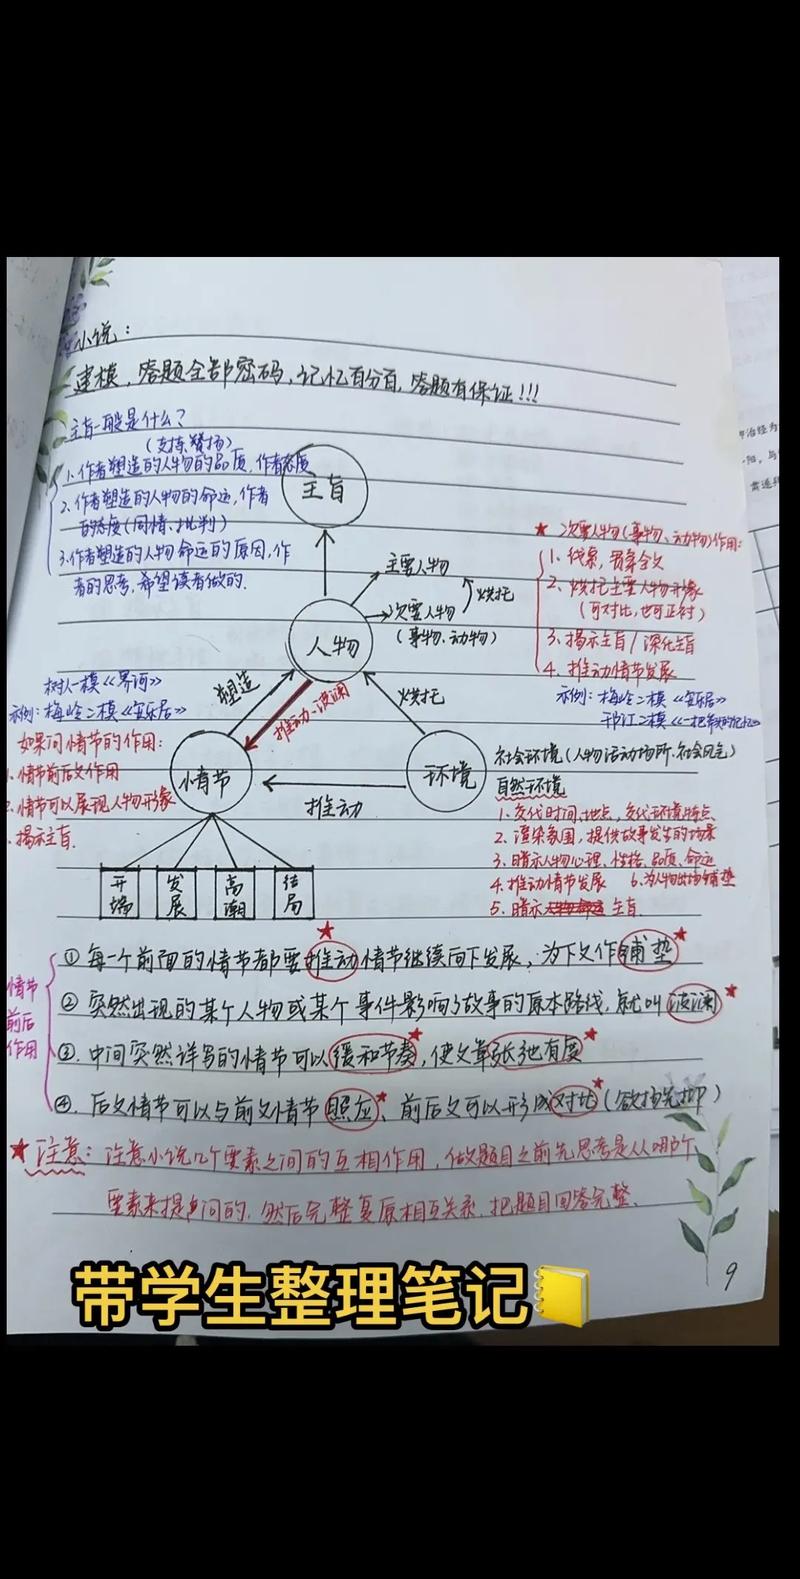 小说：
建模，答题全部密码，记忆百分百，答题有保证!!!
主旨一般是什么？
（支持、赞扬）
1.作者塑造的人物的品质，作者态度
2.作者塑造的人物的命运，作者
的态度（同情、批判）
3.作者塑造的人物命运的原因，作
者的思考，希望读者做的.
主旨
主要人物
烘托
次要人物
（事物、动物）
人物
★ 次要人物（事物、动物）作用：
1. 线索，贯穿全文
2. 烘托主要人物形象
（可对比，也可正衬）
3. 揭示主旨/深化主旨
4. 推动情节发展
示例：梅岭二模《安乐居》
邗江二模《一把带头的记忆》
树人一模《界河》
示例：梅岭二模《安乐居》
如果问情节的作用：
1.情节前后文作用
2.情节可以展现人物形象
.揭示主旨.
塑造
推动、波澜
烘托
情节
推动
环境
社会环境（人物活动场所、社会风气）
自然环境
1、交代时间、地点，交代环境特点、
2、渲染氛围，提供故事发生的场景
3、暗示人物心理、性格、品质、命运
4、推动情节发展 6、为人物出场铺垫
5、暗示 主旨.
开端
发展
高潮
结局
情节
前后
作用
① 每一个前面的情节都要推动情节继续向下发展，为下文作铺垫★
② 突然出现的某个人物或某个事件影响了故事的原本路线，就叫波澜★
③. 中间突然详写的情节可以缓和节奏★，使文章张弛有度★
④. 后文情节可以与前文情节照应★、前后文可以形成对比★（欲扬先抑）
★注意：注意小说几个要素之间的互相作用，做题目之前先思考是从哪个
要素来提问的，然后完整复原相互关系，把题目回答完整、
9
带学生整理笔记